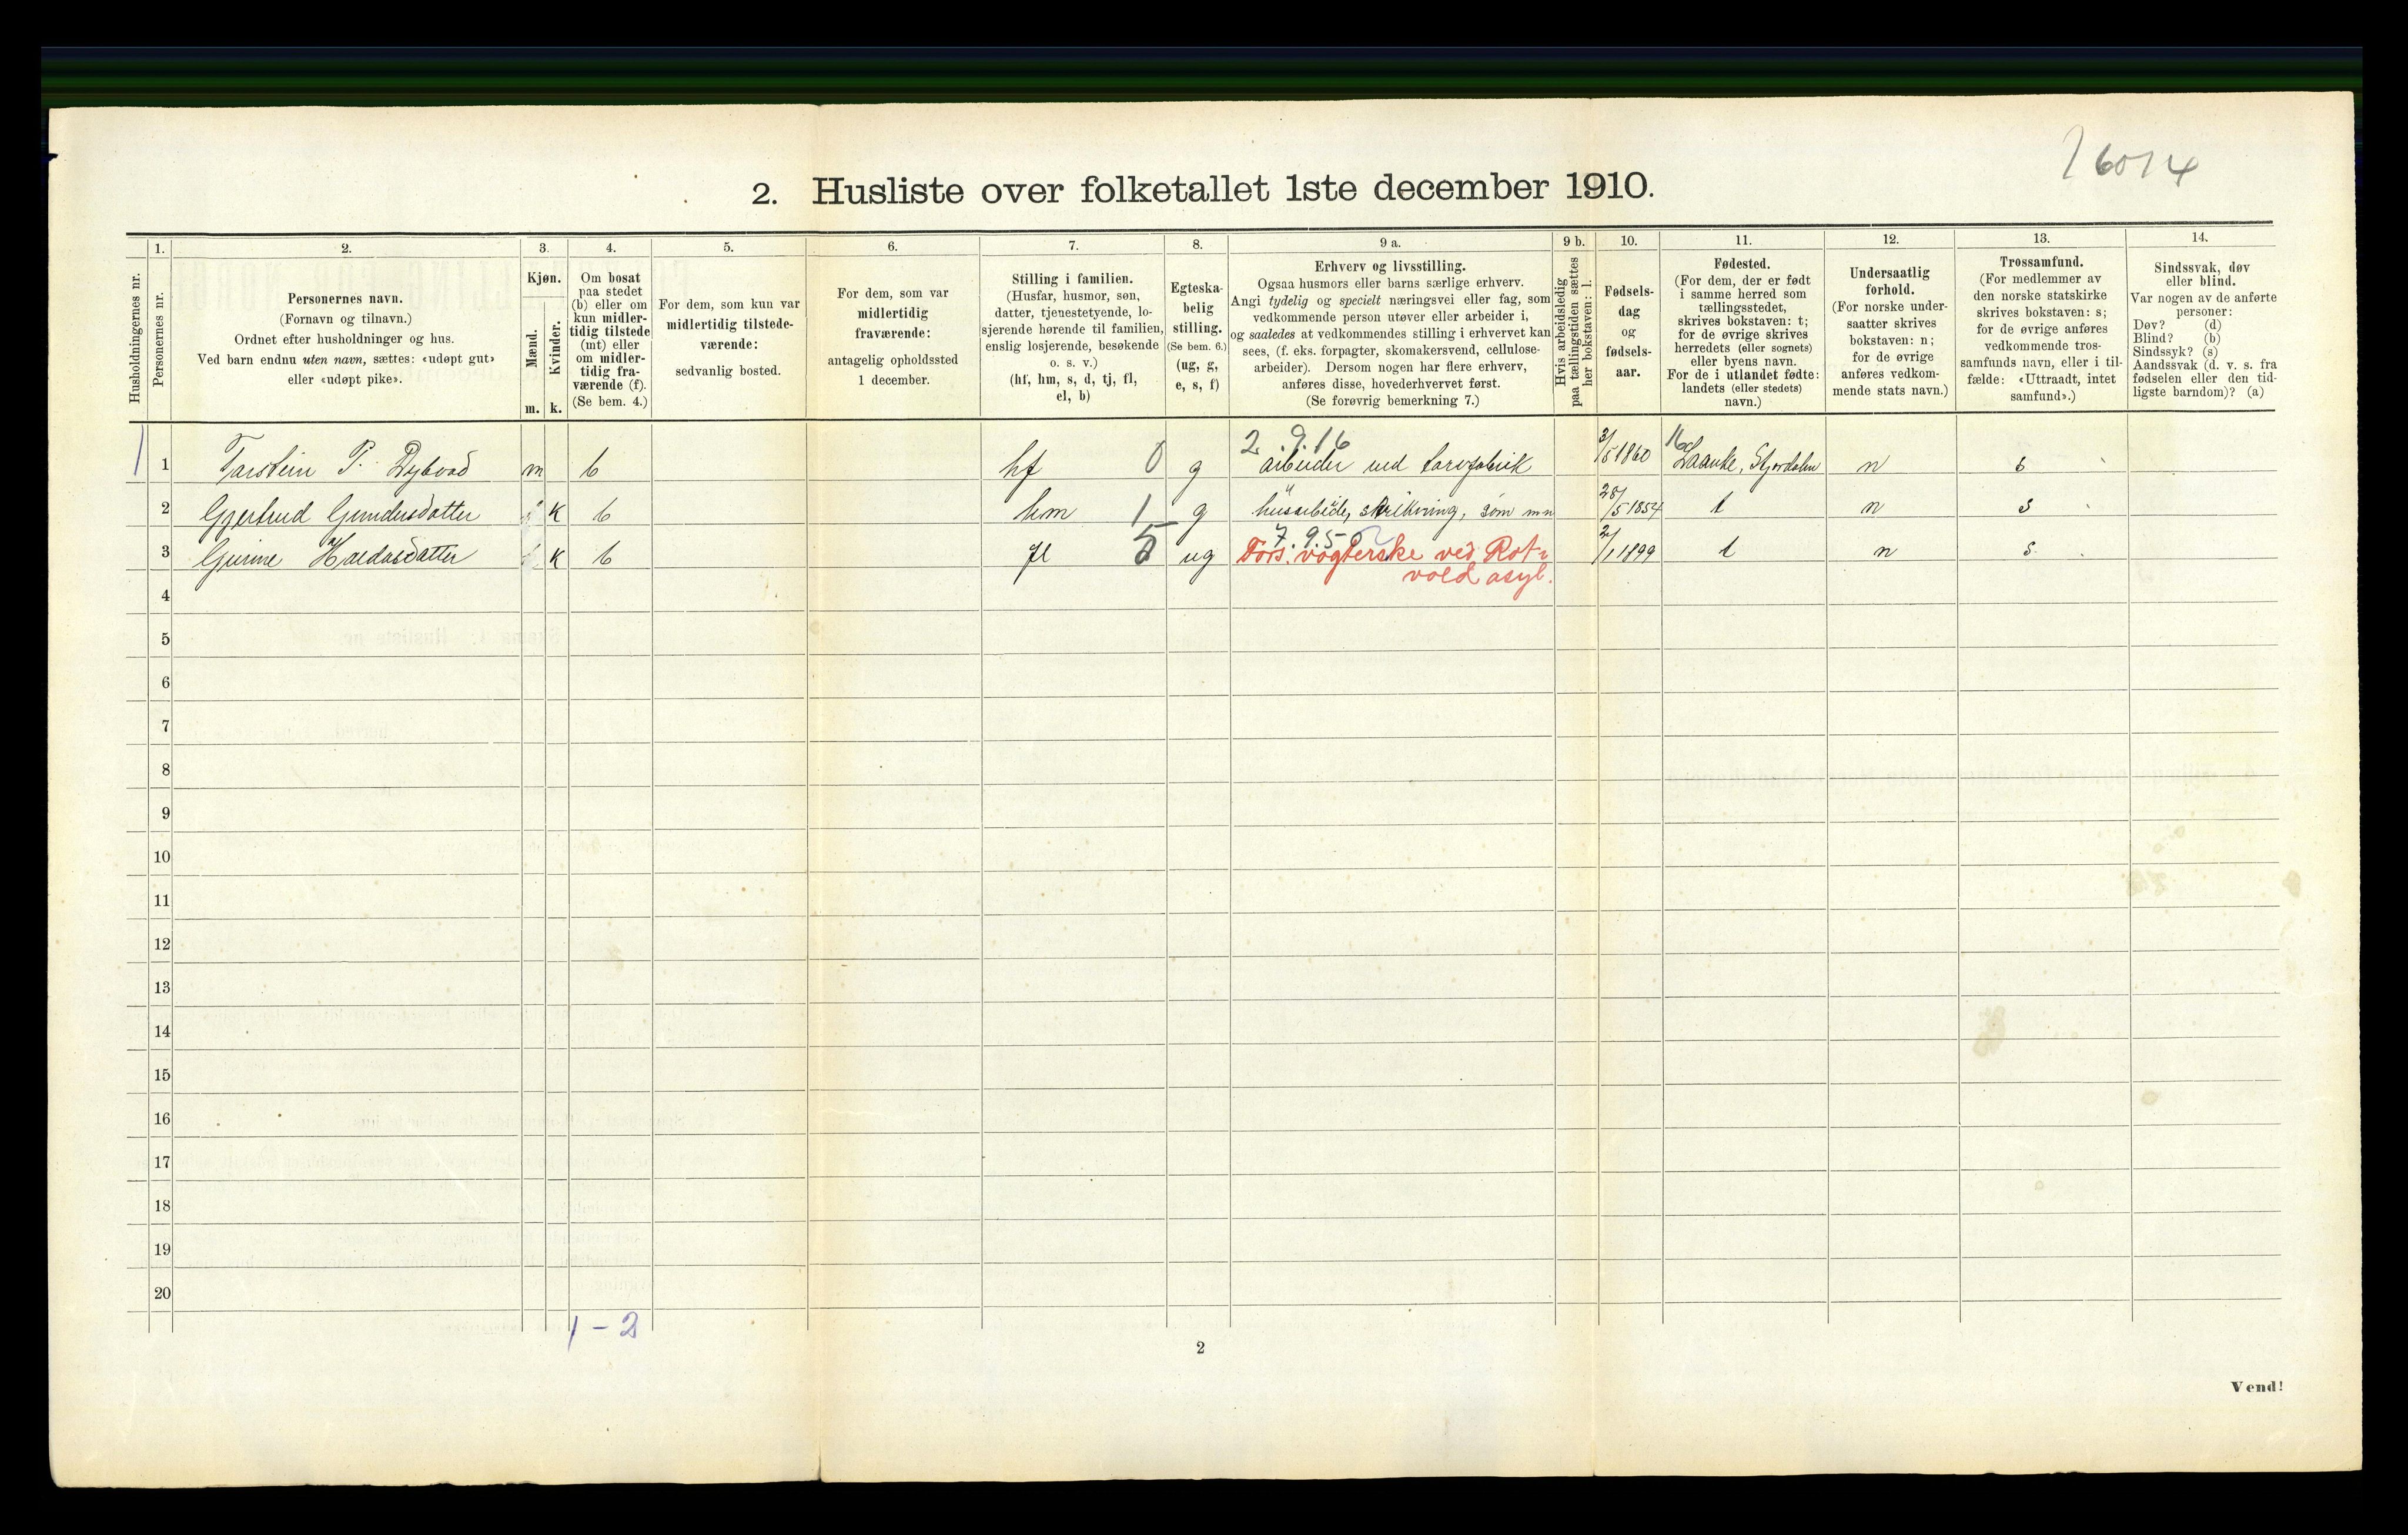 16014
2. Husliste over folketallet 1ste december 1910.
Husholdningernes nr.
1.
Personernes nr.
2.
Personernes navn.
(Fornavn og tilnavn.)
Ordnet efter husholdninger og hus.
Ved barn endnu uten navn, sættes: «udøpt gut»
eller «udøpt pike».
3.
Kjøn.
Mænd.
Kvinder.
m. k.
4.
Om bosat
paa stedet
(b) eller om
kun midler-
tidig tilstede
(mt) eller
om midler-
tidig fra-
værende (f).
(Se bem. 4.)
5.
For dem, som kun var
midlertidig tilstede-
værende:
sedvanlig bosted.
6.
For dem, som var
midlertidig
fraværende:
antagelig opholdssted
1 december.
7.
Stilling i familien.
(Husfar, husmor, søn,
datter, tjenestetyende, lo-
sjerende hørende til familien,
enslig losjerende, besøkende
o. s. v.)
(hf, hm, s, d, tj, fl,
el, b)
8.
Egteska-
belig
stilling.
(Se bem. 6.)
(ug, g,
e, s, f)
9 a.
Erhverv og livsstilling.
Ogsaa husmors eller barns særlige erhverv.
Angi tydelig og specielt næringsvei eller fag, som
vedkommende person utøver eller arbeider i,
og saaledes at vedkommendes stilling i erhvervet kan
sees, (f. eks. forpagter, skomakersvend, cellulose-
arbeider). Dersom nogen har flere erhverv,
anføres disse, hovederhvervet først.
(Se forøvrig bemerkning 7.)
9 b.
Hvis arbeidsledig
paa tællingstiden sættes
her bokstaven: l.
10.
Fødsels-
dag
og
fødsels-
aar.
11.
Fødested.
(For dem, der er født
i samme herred som
tællingsstedet,
skrives bokstaven: t;
for de øvrige skrives
herredets (eller sognets)
eller byens navn.
For de i utlandet fødte:
landets (eller stedets)
navn.)
12.
Undersaatlig
forhold.
(For norske under-
saatter skrives
bokstaven: n;
for de øvrige
anføres vedkom-
mende stats navn.)
13.
Trossamfund.
(For medlemmer av
den norske statskirke
skrives bokstaven: s;
for de øvrige anføres
vedkommende tros-
samfunds navn, eller i til-
fælde: «Uttraadt, intet
samfund».)
14.
Sindssvak, døv
eller blind.
Var nogen av de anførte
personer:
Døv? (d)
Blind? (b)
Sindssyk? (s)
Aandssvak (d. v. s. fra
fødselen eller den tid-
ligste barndom)? (a)
2.9.16 16
1 1 Tarstein P. Dybvad m b hf 0 g arbeider ved 3/5 1860 Laanke, Stjørdalen n s
2 Gjertrud Gundersdatter k b hm 1 g husarbeide, strikning, søm m m 28/5 1854 t n s
7.9.5
3 Gurine Haldosdatter k b fl 5 ug Fors. vogterske ved Rot- 2/1 1899 t n s.
vold asyl.
4
5
6
7
8
9
10
11
12
13
14
15
16
17
18
19
20
1 – 2
2
Vend!